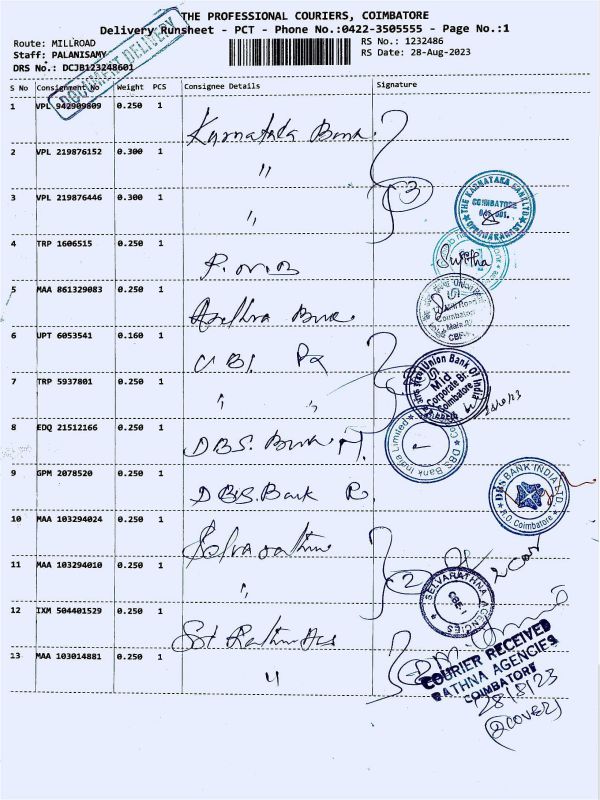 THE PROFESSIONAL COURIERS, COIMBATORE
Delivery Runsheet - PCT - Phone No.:0422-3505555 - Page No.:1
Route: MILLROAD
RS No.: 1232486
Staff: PALANISAMY
RS Date: 28-Aug-2023
DRS No.: DCJB123248601
DOCUMENT DELIVERY
S No Consignment No Weight PCS Consignee Details Signature
1 VPL 942909809 0.250 1 Karnataka Bank
2 VPL 219876152 0.300 1 "
3 VPL 219876446 0.300 1 "
3
THE KARNATAKA BANK LTD
COIMBATORE
4 TRP 1606515 0.250 1
Sujitha
5 MAA 861329083 0.250 1 Andhra Bank
Coimbatore
6 UPT 6053541 0.160 1 UBI
Union Bank Of India
Mid
Corporate Br.
Coimbatore
7 TRP 5937801 0.250 1 " "
8 EDQ 21512166 0.250 1 DBS. Bank
DBS Bank India Limited
9 GPM 2078520 0.250 1 DBS. Bank R.
DBS BANK INDIA LTD.
R.O. Coimbatore
10 MAA 103294024 0.250 1 Selvarathna
11 MAA 103294010 0.250 1 "
2
SELVARATHNA AGENCIES
CBE-1
12 IXM 504401529 0.250 1 Sri Rathna
13 MAA 103014881 0.250 1 "
COURIER RECEIVED
RATHNA AGENCIES
COIMBATORE
28/8/23
(2 COVER)